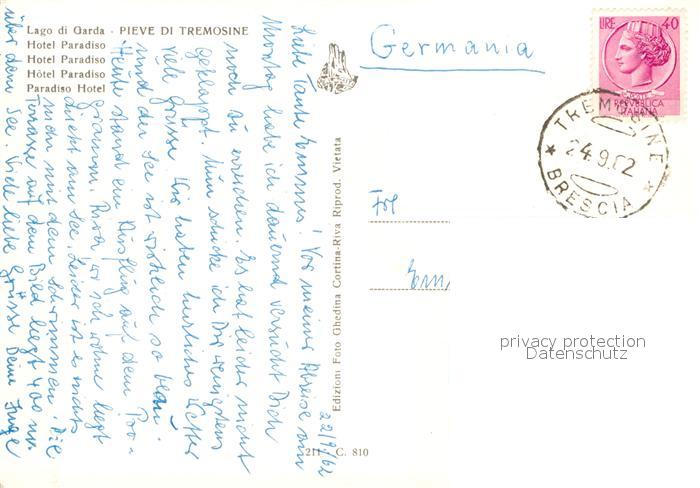 Lago di Garda - PIEVE DI TREMOSINE
Hotel Paradiso
Hotel Paradiso
Hôtel Paradiso
Paradiso Hotel
Germania
LIRE 40
REPVBBLICA
ITALIANA
TREMOSINE
24.9.62
BRESCIA
22/9/62
Liebe Tante Emmy! Vor meiner Abreise am
Montag habe ich dauernd versucht Dich
noch zu erreichen. Es hat leider nicht
geklappt. Nun schicke ich Dir wenigstens
viele Grüsse. Wir haben herrliches Wetter
und der See ist wirklich so blau.
Heute stand ein Ausflug auf dem Pro-
gramm. Riva wo ich wohne liegt
direkt am See. Leider ist es nichts
mehr mit dem Schwimmen. Die
Terrasse auf dem Bild liegt 400 m
über dem See. Viele liebe Grüsse Deine Inge
Edizioni Foto Ghedina Cortina-Riva Riprod. Vietata
211 C. 810
Frl
privacy protection
Datenschutz